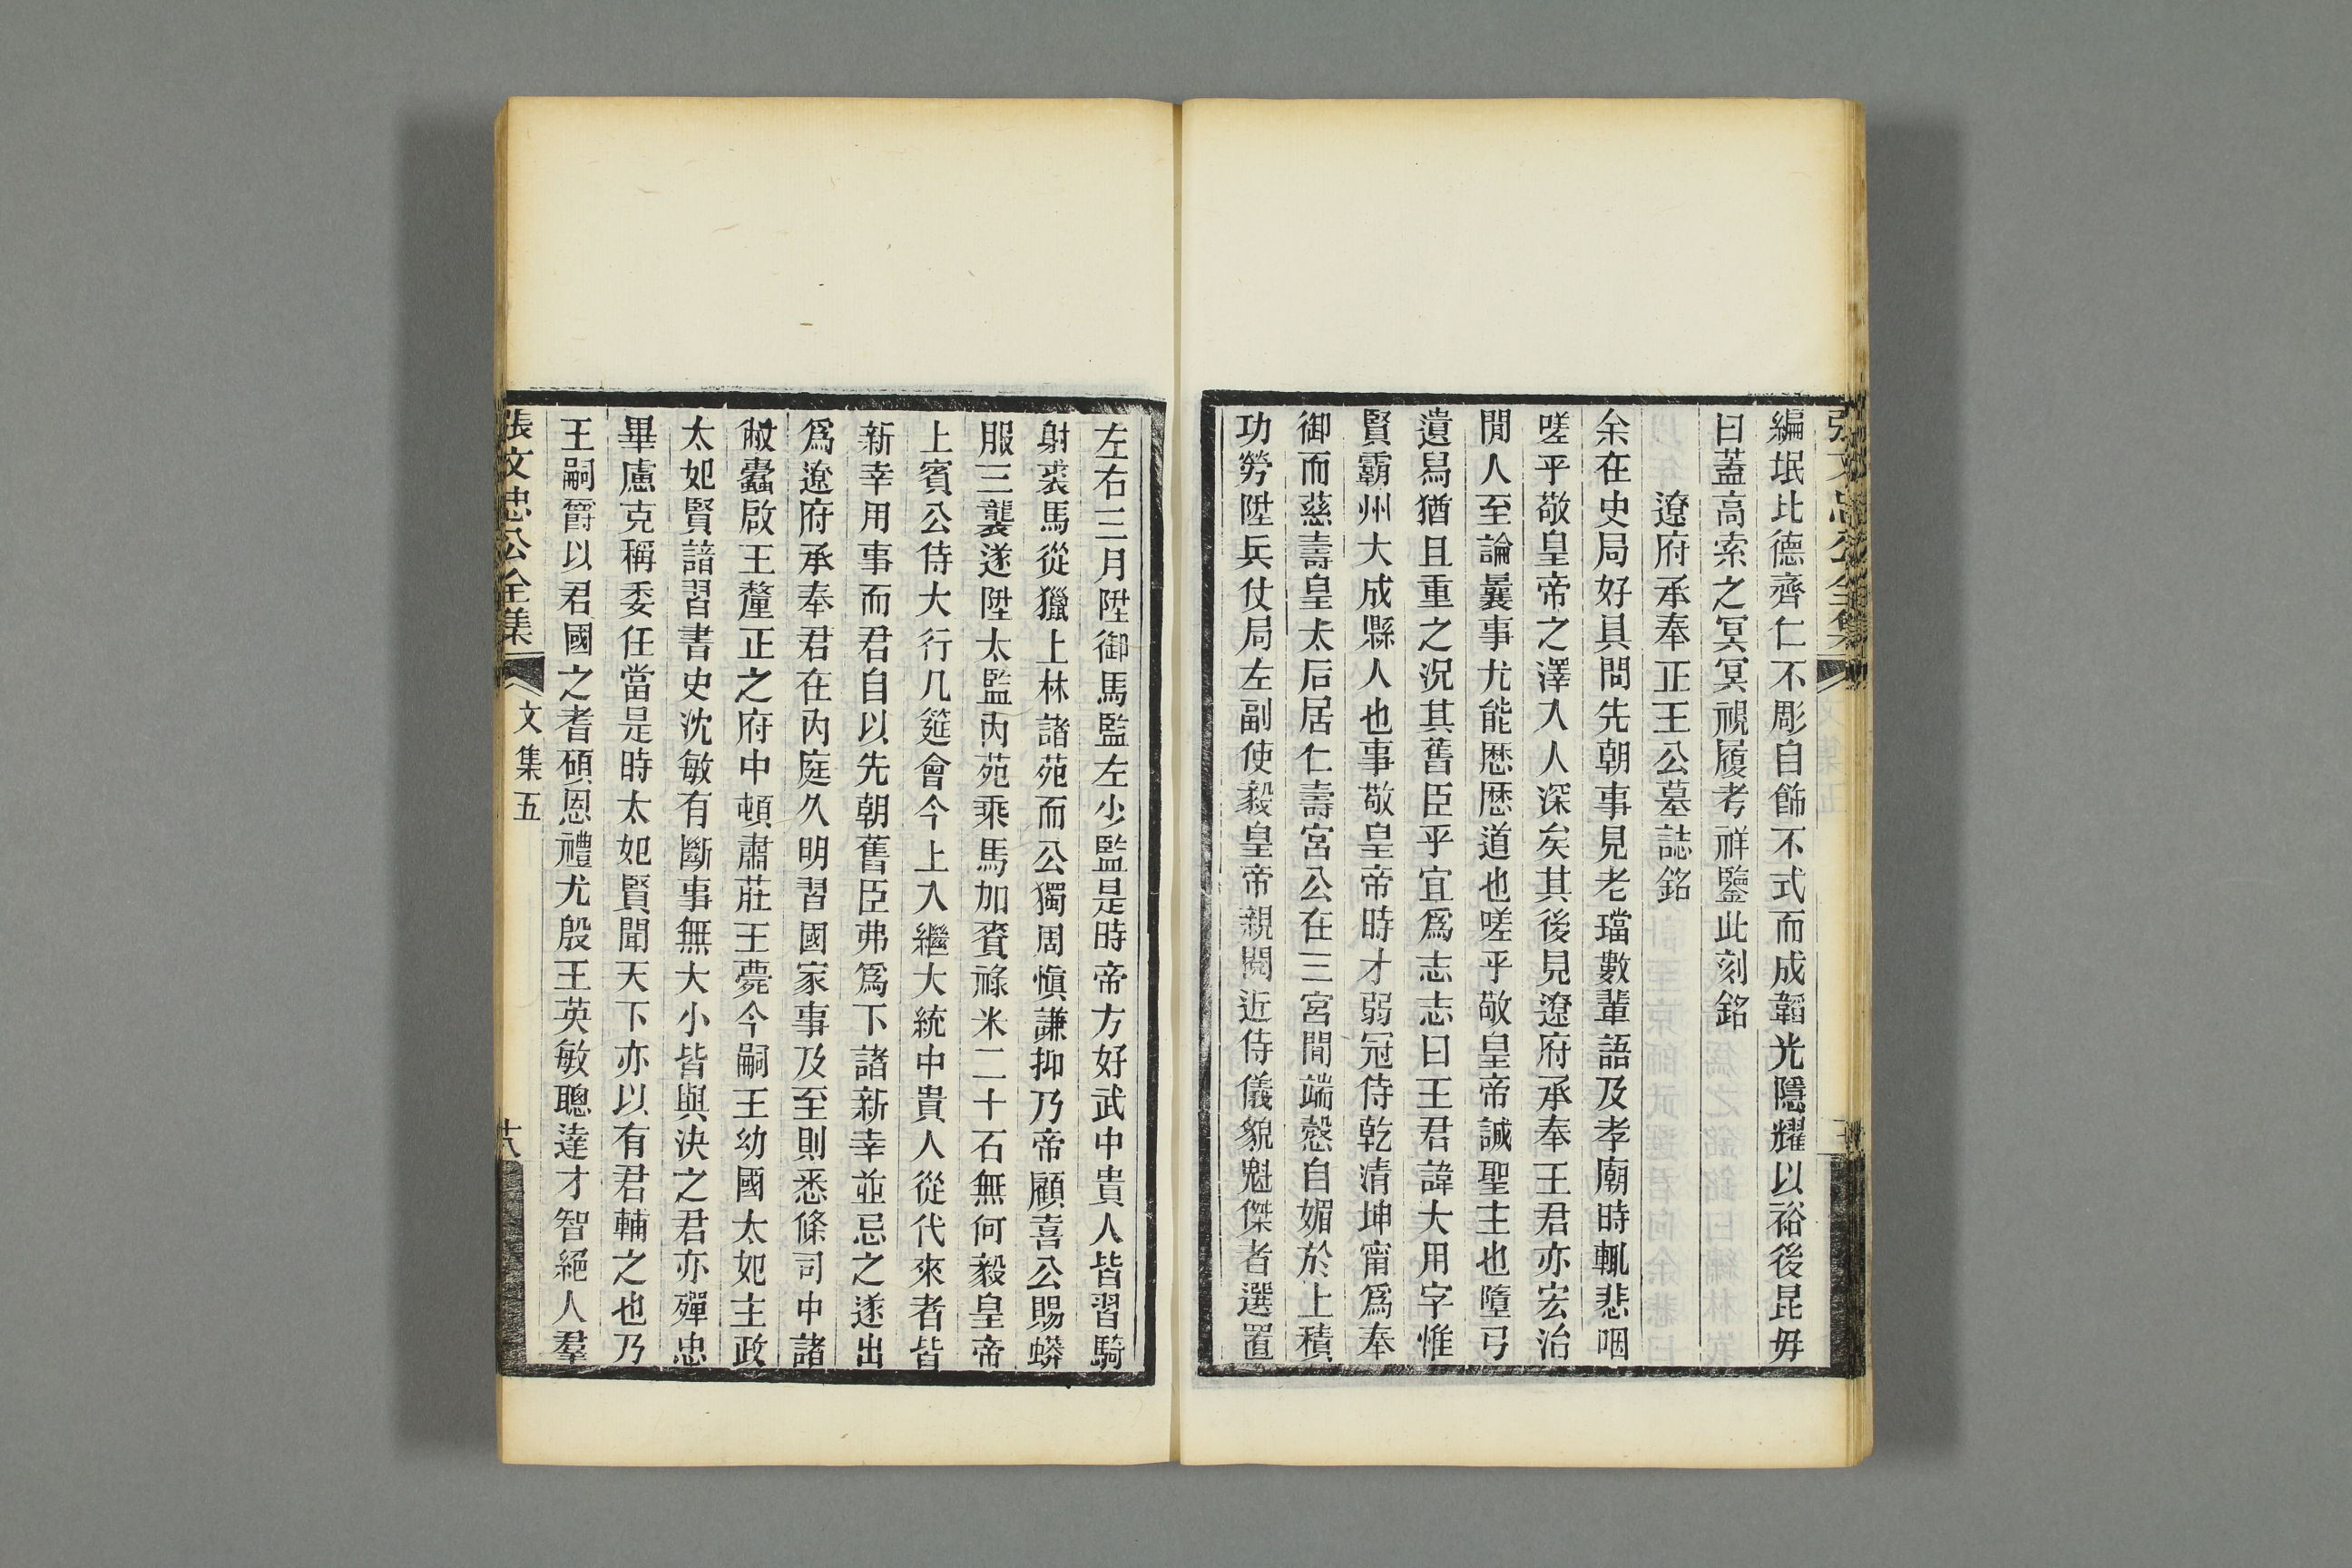 編垊比德齊仁不彫自飾不式而成韜光隱耀以裕後昆毋
曰蓋高索之冥冥視履考祥鑒此刻銘
遼府承奉正王公墓誌銘
余在史局好具問先朝事見老璫數輩語及孝廟時輒悲咽
嗟乎敬皇帝之澤入人深矣其後見遼府承奉王君亦宏治
閒人至論曩事尤能歷歷道也嗟乎敬皇帝誠聖主也墮弓
遺舄猶且重之況其舊臣乎宜爲志志曰王君諱大用字惟
賢霸州大成縣人也事敬皇帝時才弱冠侍乾清坤甯爲奉
御而慈壽皇太后居仁壽宮公在三宮間端愨自媚於上積
功勞陞兵仗局左副使毅皇帝親閱近侍儀貌魁傑者選置
左右三月陞御馬監左少監是時帝方好武中貴人皆習騎
射裘馬從獵上林諸苑而公獨周慎謙抑乃帝顧喜公賜蟒
服三襲遂陞太監內苑乘馬加賚祿米二十石無何毅皇帝
上賓公侍大行几筵會今上入繼大統中貴人從代來者皆
新幸用事而君自以先朝舊臣弗爲下諸新幸並忌之遂出
爲遼府承奉君在內庭久明習國家事及至則悉條司中諸
敝蠹啟王釐正之府中頓肅莊王薨今嗣王幼國太妃主政
太妃賢諳習書史沈敏有斷事無大小皆與決之君亦殫忠
畢慮克稱委任當是時太妃賢聞天下亦以有君輔之也乃
王嗣爵以君國之耆碩恩禮尤殷王英敏聰達才智絕人羣
張文忠公全集
文集五
十八